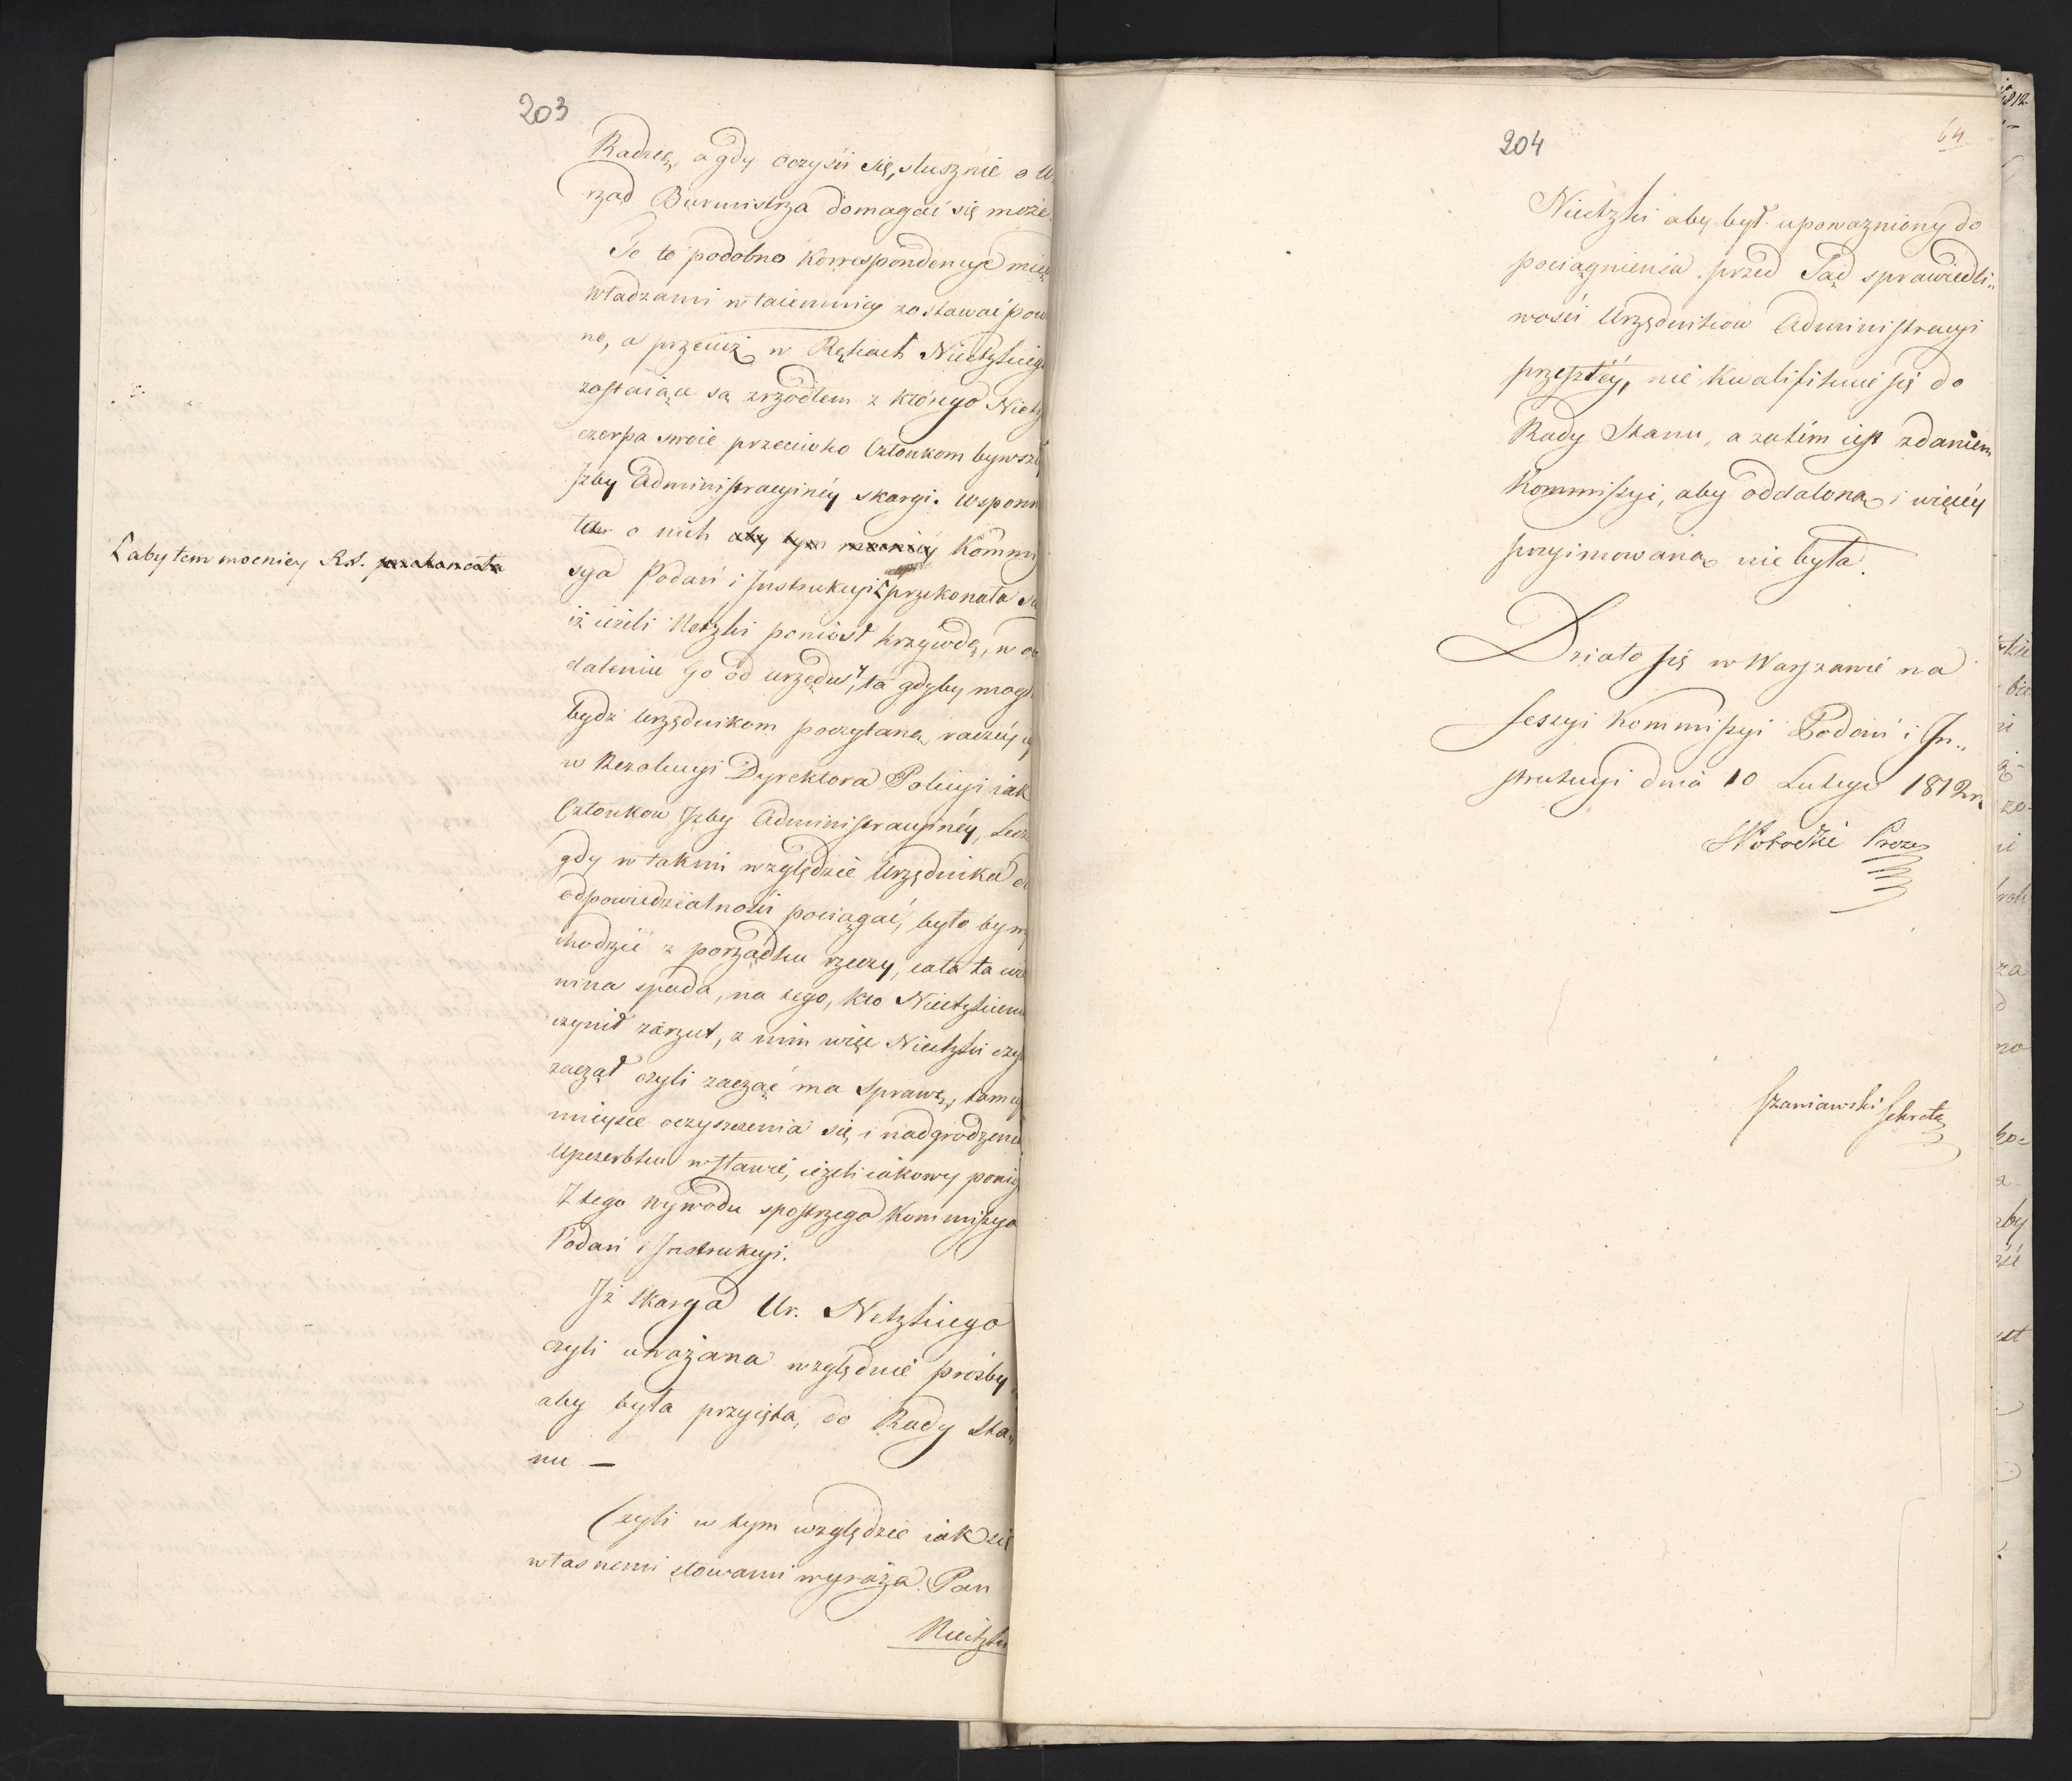 203
Radzę, a gdy oczyści się, słusznie o U
rząd Burmistrza domagać się może.
Te to podobno Korrespondencye mię
władzami w taiemnicy zostawać pow
ne, a przecież w Rękach Nieetzkieg
zostaiące są zrzodłem z którego Nietz
czerpa swoie przeciwko Członkom bywszéy
Izby Administracyinéy skargi. Wspomn
o nich aby tym mocniéy Kommi
ssya Podań i Instrukcyi przekonała
[aby tem mocniey R.S. przekonała
iż ieżeli Netzki poniósł krzywdę, w od
daleniu go od urzędu, ta gdyby mogł
bydź Urzędnikom poczytaną, raczéy
w Rezolucyi Dyrektora Policyi iak
Członkow Izby Administracyinéy, Lecz
gdy w takim względzie Urzędnika do
odpowiedzialności pociągać, było by wy
chodzić z porządku rzeczy, cała ta wi
nina spada, na tego, kto Nieetzkiemu
czynił zarzut, z nim więc Nieetzki czyli
zaczął czyli zacząć ma sprawę, tam
mieysce oczyszczenia się i nadgrodzenia
Uszczerbku w sławie, ieżeli iakowy poniósł
Z tego wywodu spostrzega Kommissya
Podań i Instrukcyi.
Iż skarga Ur. Netzkiego
czyli uważana względnie prośby
aby była przyięta, do Rady Sta„
nu —
Czyli w tym względzie iak się
własnemi słowami wyraża Pan
Nieetzki
204
64
Nieetzki aby był upoważniony do
pociągnienia przed Sąd sprawiedli„
wości Urzędnikow Administracyi
przeszłéy, nie kwalifikuie się do
Rady Stanu, a zatím iest zdaniem
Kommissyi, aby oddalona i więcéy
przyimowaną nie była.
Działo się w Warszawie na
sessyi Kommissyi Podań i In„
strukcyi dnia 10 Lutego 1812 r.
Potocki Prezes
Szaniawski Sekretz